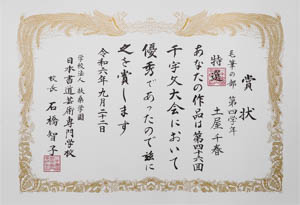 賞状
毛筆の部 第四学年
特選 土屋千春
あなたの作品は第四十六回
千字文大会において
優秀であったので茲に
之を賞します
令和六年九月二十二日
学校法人 扶桑学園
日本書道芸術専門学校
校長 石橋智子